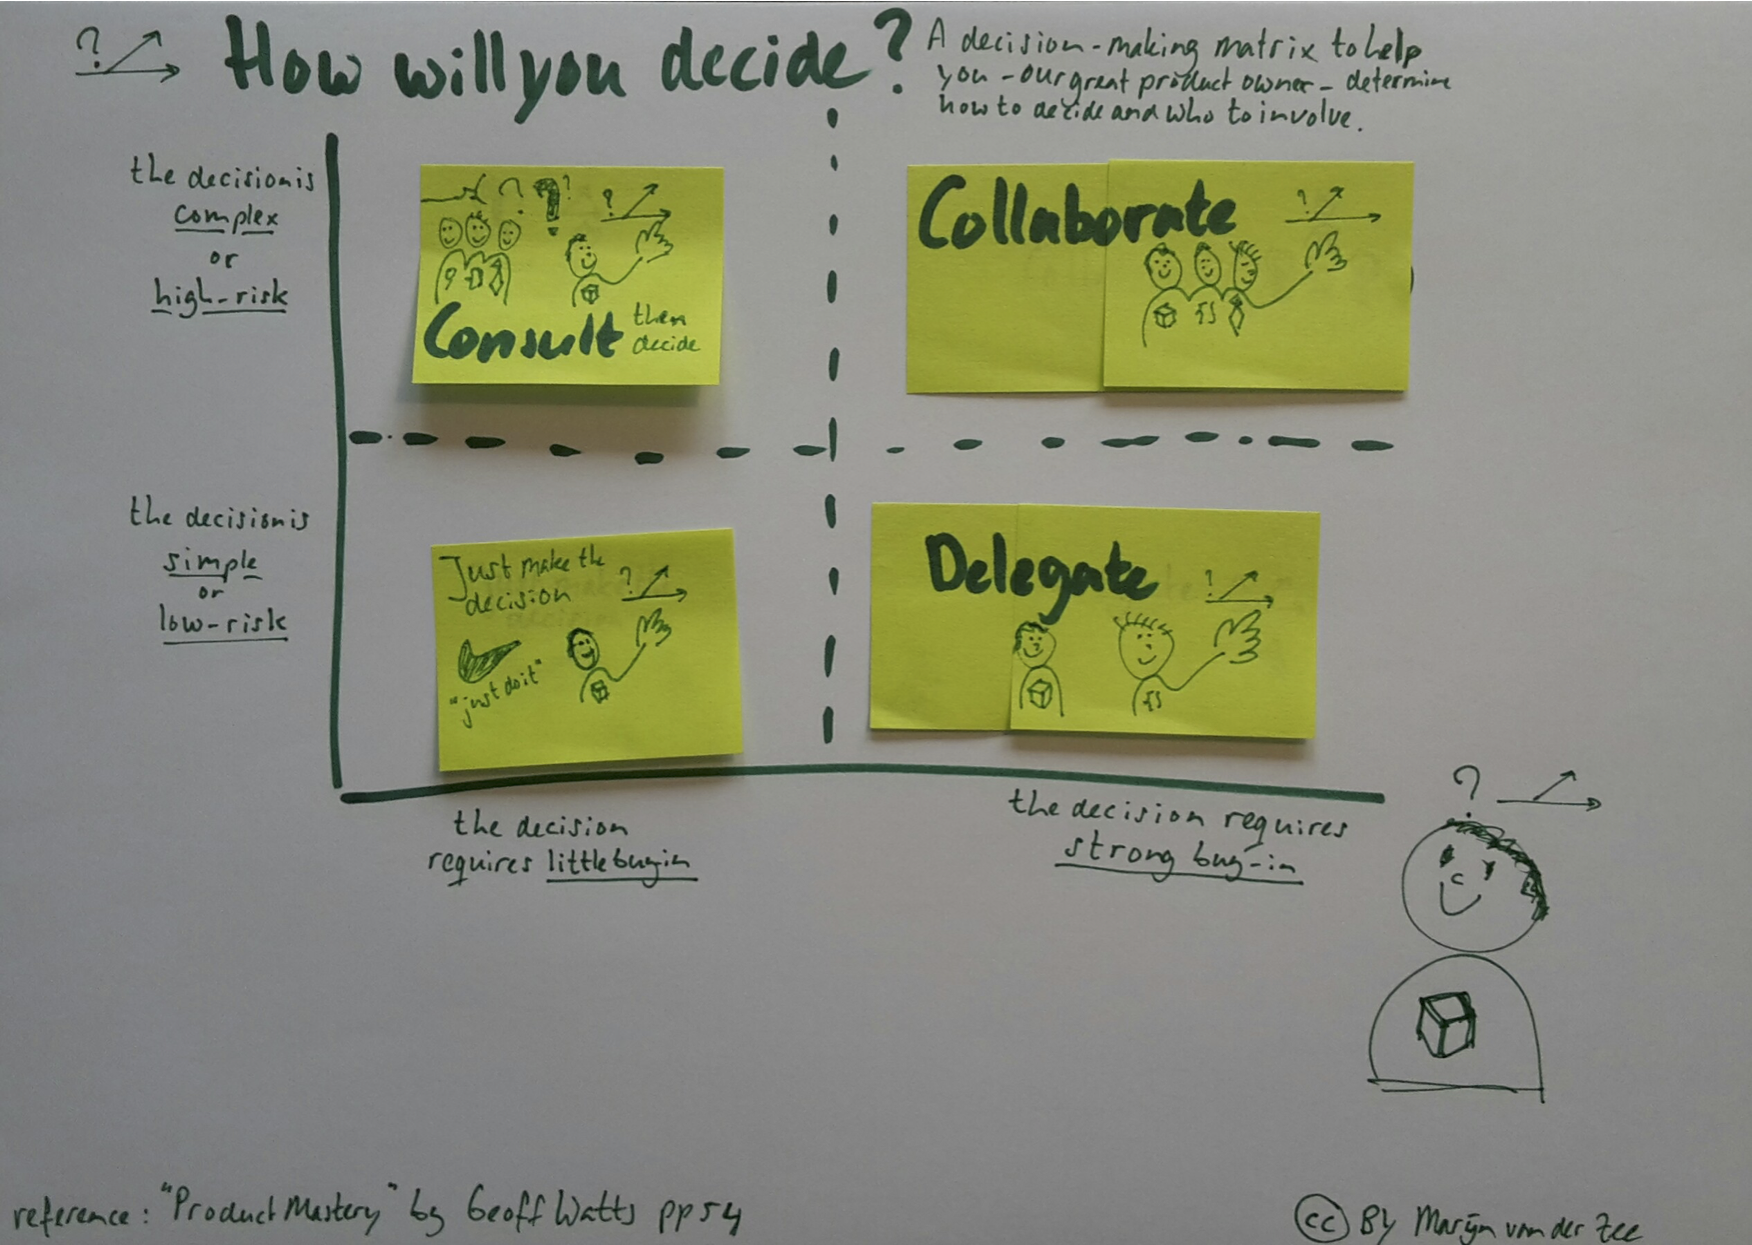 ? How will you decide?
A decision-making matrix to help
you - our great product owner - determine
how to decide and who to involve.
the decision is
complex
or
high-risk
? ? ?
?
Consult then
decide
Collaborate
?
the decision is
simple
or
low-risk
Just make the
decision
?
"just do it"
Delegate
?
the decision
requires little buy-in
the decision requires
strong buy-in
?
reference: "Product Mastery" by Geoff Watts pp 54
cc BY Marijn van der Zee